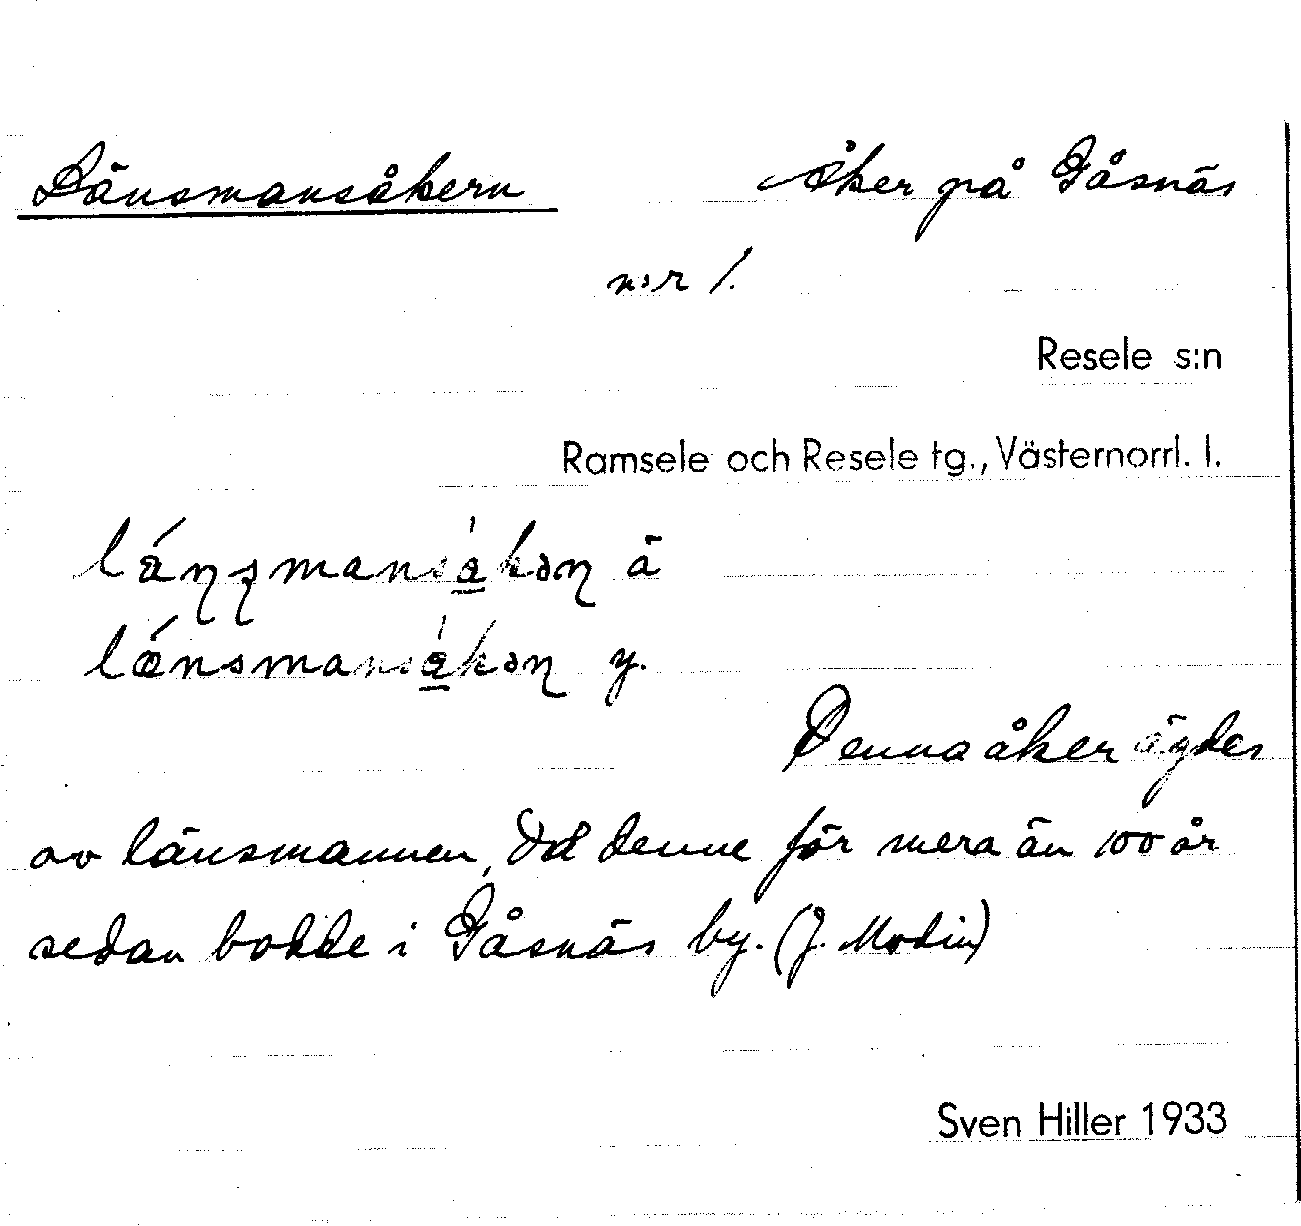 Länsmansåkern Åker på Gåsnäs
n:r 1.
Resele s:n
Ramsele och Resele tg., Västernorrl. l.
ä
y.
Denna åker ägdes
av länsmannen, då denne för mera än 100 år
sedan bodde i Gåsnäs by. (J. Modin)
Sven Hiller 1933